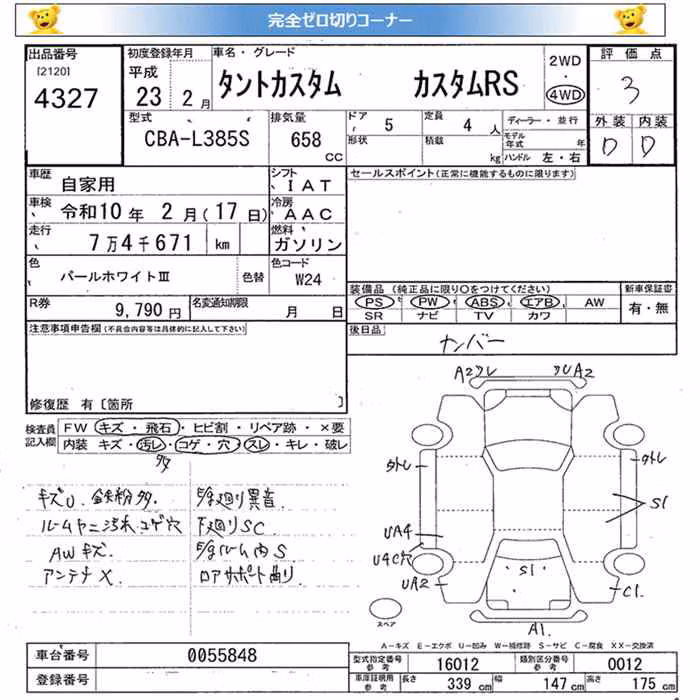 完全ゼロ切りコーナー
出品番号
[2120]
4327
初度登録年月
平成
23 2月
車名・グレード
タントカスタム カスタムRS
2WD
・
4WD
評価点
3
外装 内装
D D
型式
CBA-L385S
排気量
658
CC
ドア
5
形状
定員
4 人
積載
kg
ディーラー・並行
モデル年式 年
ハンドル 左・右
車歴
自家用
シフト
IAT
車検
令和10年 2月(17日)
冷房
AAC
走行
7万4千671 km
燃料
ガソリン
色
パールホワイトⅢ
色替
色コード
W24
R券
9,790円
名変通知期限
月 日
セールスポイント(正常に機能するものに限ります)
装備品(純正品に限り○をつけてください)
PS PW ABS エアB AW
SR ナビ TV カワ
新車保証書
有・無
後日品
ナンバー
注意事項申告欄(不具合内容等は具体的に記入して下さい)
修復歴 有〔箇所 〕
検査員記入欄
FW キズ・飛石・ヒビ割・リペア跡・×要
内装 キズ・汚レ・コゲ・穴・スレ・キレ・破レ
多
キズU 鉄粉多.
ルームヤニ汚れ コゲ穴
AWキズ.
アンテナX
廻り異音
下廻りSC
ルーム内S
ロアサポート曲り
A2 A2
外レ
外レ
S1
UA4
U4C穴
UA2
S1
C1.
A1.
スペア
A-キズ E-エクボ U-凹み W-補修跡 S-サビ C-腐食 XX-交換済
車台番号
0055848
登録番号
型式指定番号 参考
16012
類別区分番号 参考
0012
車庫証明用 参考
長さ 339cm 幅 147cm 高さ 175cm